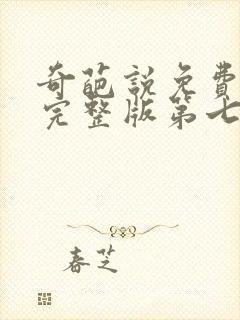 奇葩説免費
完整版第七
春芝